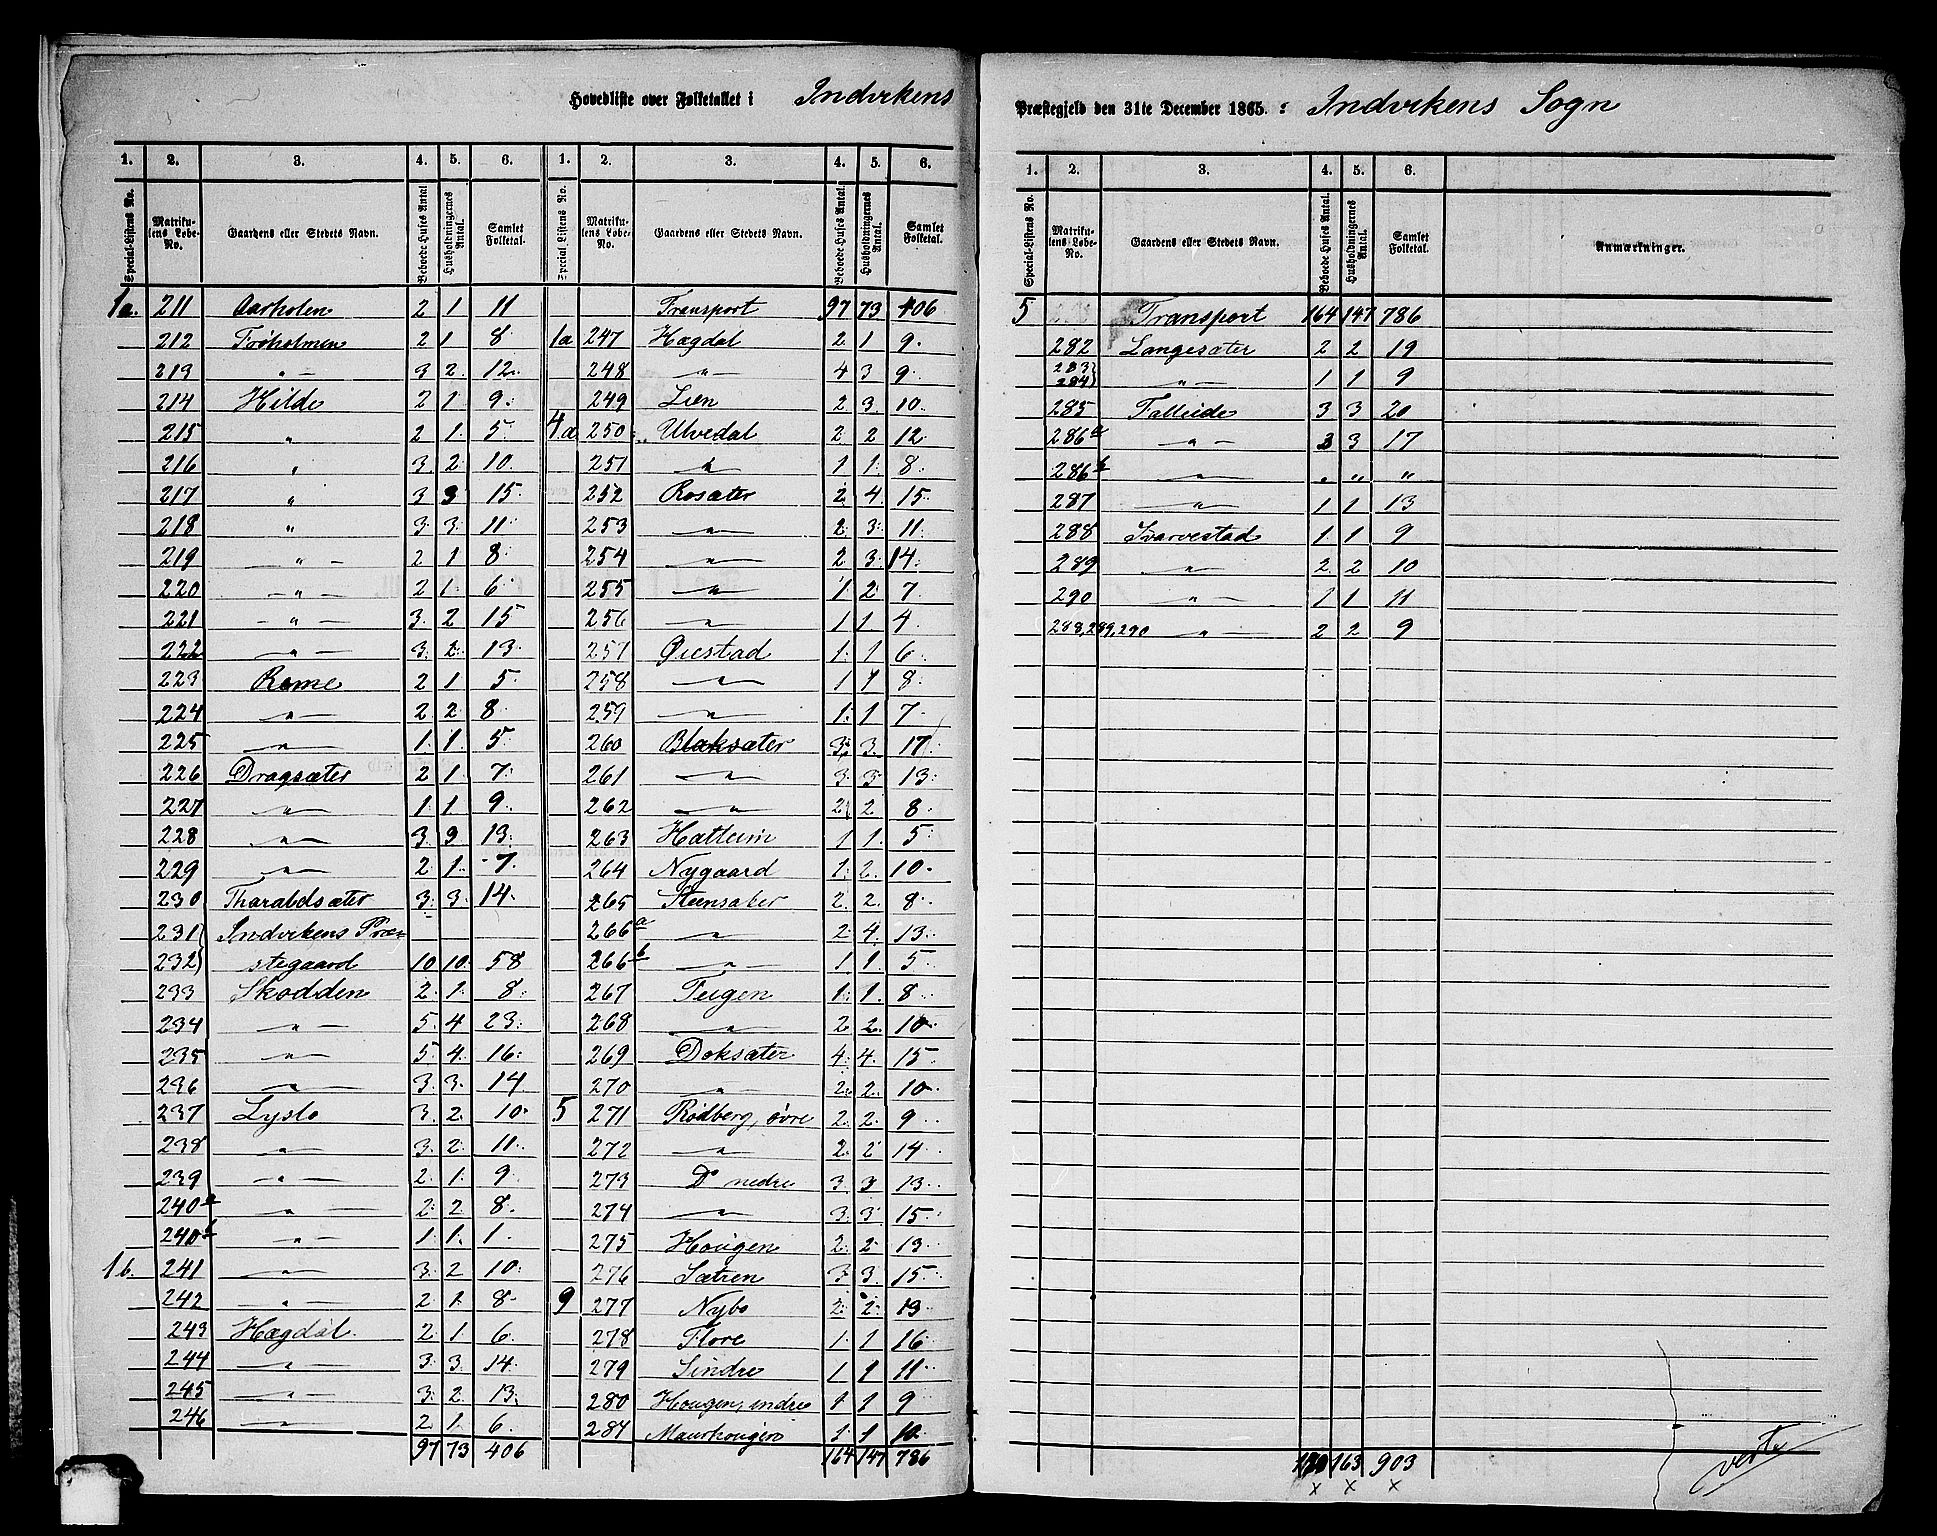 Hovedliste over Folketallet i Indvikens Præstegjeld den 31te December 1865: Indvikens Sogn
1. 2. 3. 4. 5. 6. 1. 2. 3. 4. 5. 6.
Special-Listens No. Matrikulens Løbe-No. Gaardens eller Stedets Navn. Beboede Huses Antal Husholdningernes Antal. Samlet Folketal. Special-Listens No. Matrikulens Løbe-No. Gaardens eller Stedets Navn. Beboede Huses Antal. Husholdningernes Antal. Samlet Folketal.
1a. 211 Aarholen 2 1 11
212 Frøholmen 2 1 8
213 -"- 3 2 12
214 Hilde 2 1 9
215 " 2 1 5
216 " 3 2 10
217 " 3 3 15
218 " 3 3 11
219 -"- 2 1 8
220 -"- 2 1 6
221 -"- 3 2 15
222 -"- 3 2 13
223 Rome 2 1 5
224 -"- 2 2 8
225 -"- 1 1 5
226 Dragsæter 2 1 7
227 -"- 1 1 9
228 -"- 3 3 13
229 -"- 2 1 7
230 Tharaldsæter 3 3 14
231 Indvikens Præ-
232 stegaard 10 10 58
233 Skodden 2 1 8
234 -"- 5 4 23
235 -"- 5 4 16
236 -"- 3 3 14
237 Lyslo 3 2 10
238 -"- 3 2 11
239 -"- 2 1 9
240a -"- 2 2 8
240b -"- 1 1 1
1b. 241 -"- 3 2 10
242 -"- 2 1 8
243 Hægdal 2 1 6
244 -"- 3 3 14
245 -"- 3 2 13
246 -"- 2 1 6
97 73 406
Transport 97 73 406
1a 247 Hægdal 2 1 9
248 -"- 4 3 9
249 Lien 2 3 10
4a 250 Ulvedal 2 2 12
251 -"- 1 1 8
252 Rosæter 2 4 15
253 -"- 2 3 11
254 -"- 2 3 14
255 -"- 1 2 7
256 -"- 1 1 4
257 Øiestad 1 1 6
258 -"- 1 1 8
259 -"- 1 1 7
260 Blaksæter 3 3 17
261 -"- 3 3 13
262 -"- 2 2 8
263 Hatleim 1 1 5
264 Nygaard 1 2 10
265 Steensæter 2 2 8
266a -"- 2 4 13
266b -"- 1 1 5
267 Teigen 1 1 8
268 -"- 2 2 10
269 Doksæter 4 4 15
270 -"- 2 2 10
5 271 Rødberg, øvre 2 2 9
272 -"- 2 2 14
273 Do nedre 3 3 13
274 -"- 3 3 15
275 Hougen 2 2 13
276 Sætren 3 3 15
9 277 Nybø 2 2 13
278 Flore 1 1 16
279 Sindre 1 1 11
280 Hougen, indre 1 1 9
281 Maurhougen 1 1 10
164 147 786
1. 2. 3. 4. 5. 6.
Special-Listens No. Matrikulens Løbe-No. Gaardens eller Stedets Navn. Beboede Huses Antal. Husholdningernes Antal. Samlet Folketal. Anmærkninger.
5 Transport 164 147 786
282 Langesæter 2 2 19
283 284 -"- 1 1 9
285 Talleide 3 3 20
286a -"- 3 3 17
286b -"- " " "
287 -"- 1 1 13
288 Svarvestad 1 1 9
289 -"- 2 2 10
290 -"- 1 1 11
288, 289, 290 -"- 2 2 9
180 163 903
x x x
verte